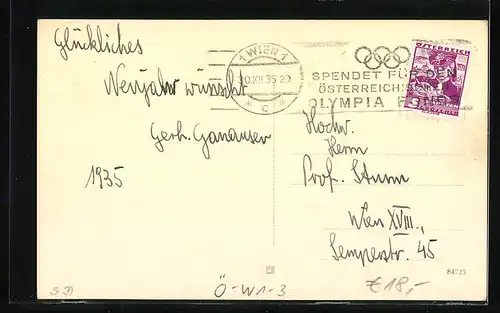 Glückliches
Neujahr wünscht
Gerh. Ganauser
1935
1 WIEN 1
30.XII.35 20
* C *
SPENDET FÜR DEN
ÖSTERREICHISCHEN
OLYMPIA FONDS
ÖSTERREICH
Hochw.
Herrn
Prof. Sturm
Wien XVIII.,
Semperstr. 45
84725
Ö-W1-3
€18,-